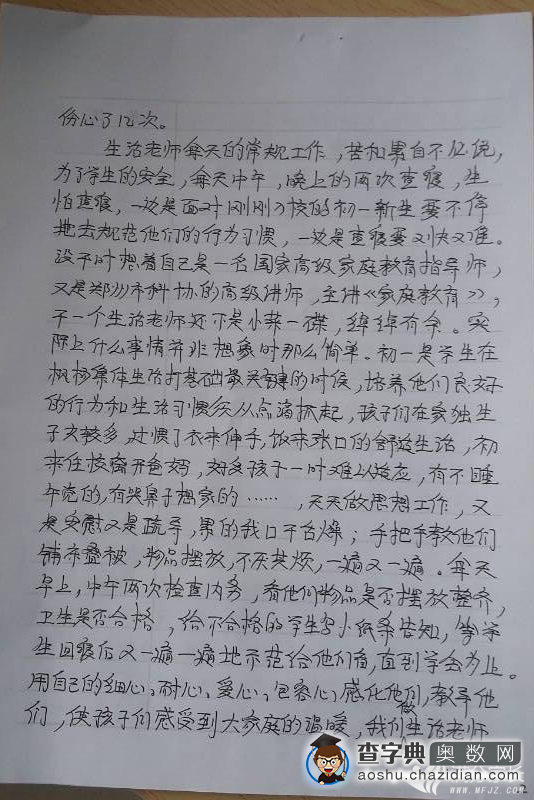 份心了12次。
生活老师每天的常规工作，苦和累自不必说，
为了学生的安全，每天中午，晚上的两次查寝，生
怕查寝，一边是面对刚刚入校的初一新生要不停
地去规范他们的行为习惯，一边是查寝要又快又准。
没平时想着自己是一名国家高级家庭教育指导师，
又是郑州市科协的高级讲师，主讲《家庭教育》，
干一个生活老师还不是小菜一碟，绰绰有余。实
际上什么事情并非想象时那么简单。初一是学生在
枫杨集体生活打基础最关键的时候，培养他们良好
的行为和生活习惯须从点滴抓起，孩子们在家独生
子女较多，过惯了衣来伸手，饭来张口的舒适生活，初
来住校离开爸妈，好多孩子一时难以适应，有不睡
午觉的，有哭鼻子想家的……，天天做思想工作，又
是安慰又是疏导，累的我口干舌燥；手把手教他们
铺床叠被，物品摆放，不厌其烦，一遍又一遍。每天
早上，中午两次检查内务，看他们物品是否摆放整齐，
卫生是否合格，给不合格的学生写小纸条告知，等学
生回寝后又一遍一遍地示范给他们看，直到学会为止。
用自己的细心、耐心、爱心、包容心感化他们，教导他
们，使孩子们感受到大家庭的温暖，我们做生活老师
查字典奥数网
aoshu.chazidian.com
WWW.MFJZ.COM